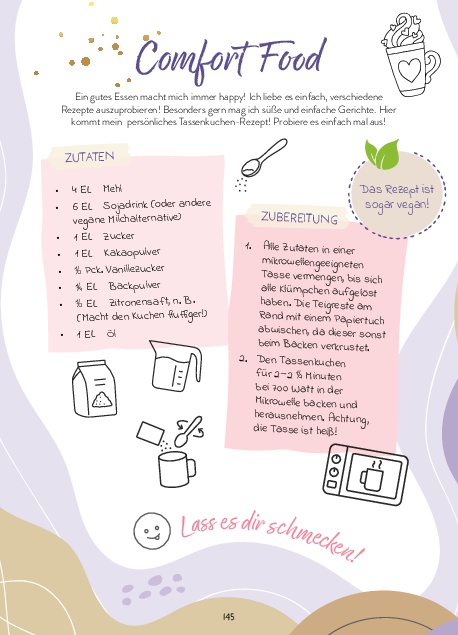 Comfort Food
Ein gutes Essen macht mich immer happy! Ich liebe es einfach, verschiedene
Rezepte auszuprobieren! Besonders gern mag ich süße und einfache Gerichte. Hier
kommt mein persönliches Tassenkuchen-Rezept! Probiere es einfach mal aus!
ZUTATEN
• 4 EL Mehl
• 6 EL Sojadrink (oder andere
vegane Milchalternative)
• 1 EL Zucker
• 1 EL Kakaopulver
• ½ Pck. Vanillezucker
• ¼ EL Backpulver
• ½ EL Zitronensaft, n. B.
(Macht den Kuchen fluffiger!)
• 1 EL Öl
Das Rezept ist
sogar vegan!
ZUBEREITUNG
1. Alle Zutaten in einer
mikrowellengeeigneten
Tasse vermengen, bis sich
alle Klümpchen aufgelöst
haben. Die Teigreste am
Rand mit einem Papiertuch
abwischen, da dieser sonst
beim Backen verkrustet.
2. Den Tassenkuchen
für 2–2 ½ Minuten
bei 700 Watt in der
Mikrowelle backen und
herausnehmen. Achtung,
die Tasse ist heiß!
Lass es dir schmecken!
145